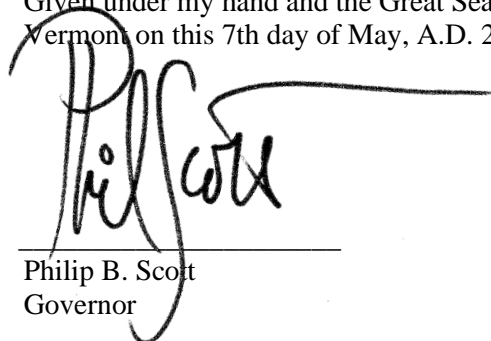 Given under my hand and the Great Sea
Vermont on this 7th day of May, A.D. 2
Phil Scott
Philip B. Scott
Governor